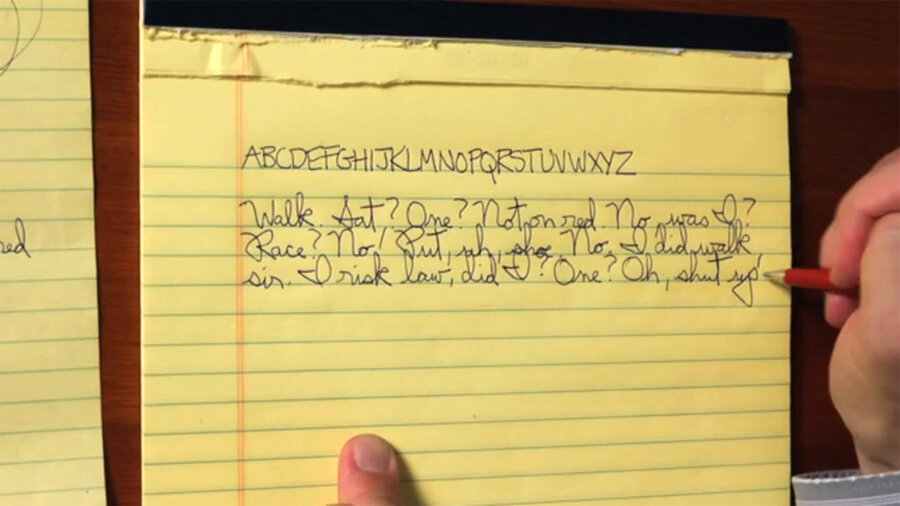 ABCDEFGHIJKLMNOPQRSTUVWXYZ
Walk. Sat? One? Not on red. No, was I?
Race? No! Put, uh, shoe. No, I did walk
sir. I risk law, did I? One? Oh, shut up!
red